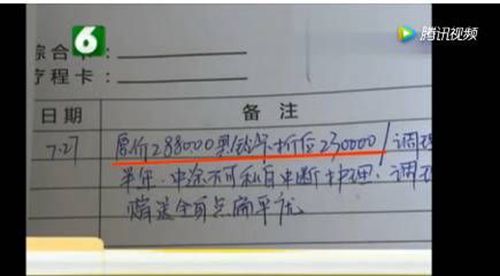 6
腾讯视频
综合卡：
疗程卡：
日期 备注
7.27 原价288000奥钻卡折后230000/调理
半年.中途不可私自中断护理.调理
赠送全身点扁平疣